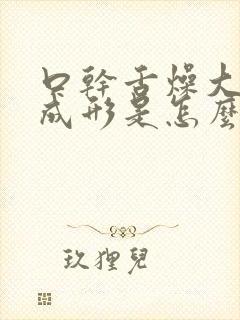 口幹舌燥大
成形是怎麼
玖狸兒